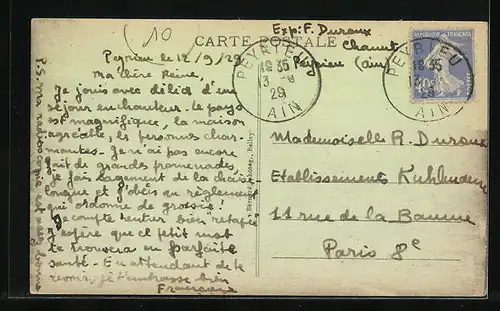 (10
CARTE POSTALE
Exp: F. Duroux
Chanut
Peyrieu (ain)
Peyrieu le 12/9/29
Ma chère Reine,
Je jouis avec délice d'un
séjour enchanteur. Le pays
est magnifique, la maison
agréable, les personnes char-
mantes. Je n'ai pas encore
fait de grandes promenades
je fais largement de la chaise
longue et j'obéis au règlement
qui ordonne de grossir!
Je compte rentrer bien retapée
j'espère que ce petit mot
te trouvera en parfaite
santé. En attendant de te
revoir, je t'embrasse bien
Françoise
P.S. Ma radioscopie est
PEYRIEU
18 35
13 - 9
29
AIN
REPUBLIQUE FRANÇAISE
PEYRIEU
18 35
29
AIN
Mademoiselle R. Duroux
Etablissements
11 rue de la Baume
Paris 8e